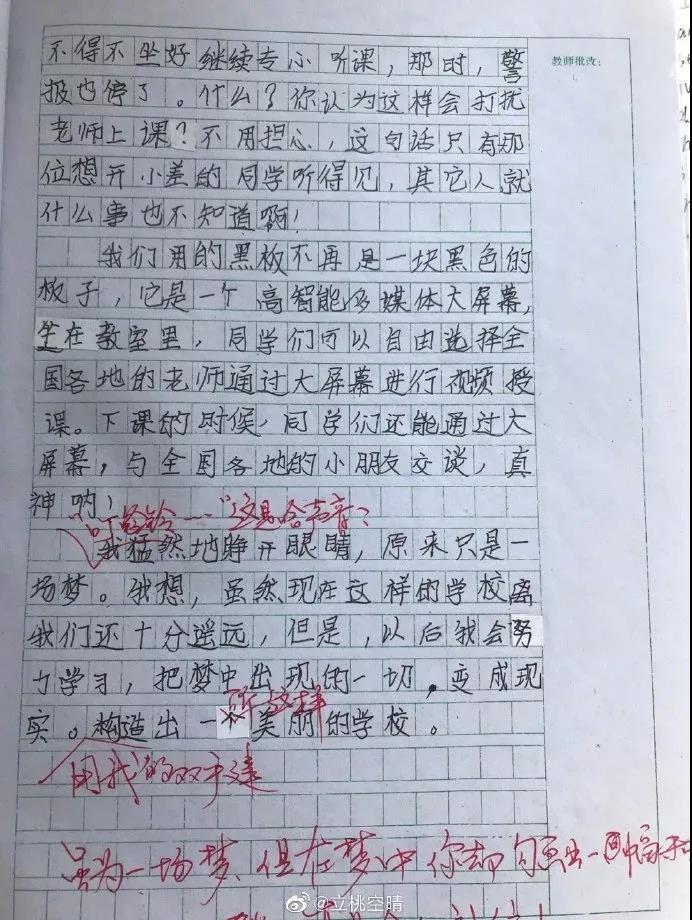 教师批改:
不得不坐好继续专心听课,那时,警
报也停了。什么?你认为这样会打扰
老师上课?不用担心,这句话只有那
位想开小差的同学听得见,其它人就
什么事也不知道啊!
我们用的黑板不再是一块黑色的
板子,它是一个高智能多媒体大屏幕,
坐在教室里,同学们可以自由选择全
国各地的老师通过大屏幕进行视频授
课。下课的时候,同学们还能通过大
屏幕,与全国各地的小朋友交谈,真
神呐!
"叮铃铃……"这是啥声音?
我猛然地睁开眼睛,原来只是一
场梦。我想,虽然现在这样的学校离
我们还十分遥远,但是,以后我会努
力学习,把梦中出现的一切,变成现
实。构造出一所这样美丽的学校。
用我的双手建
虽为一场梦,但在梦中你却勾画出一
@立桃空晴